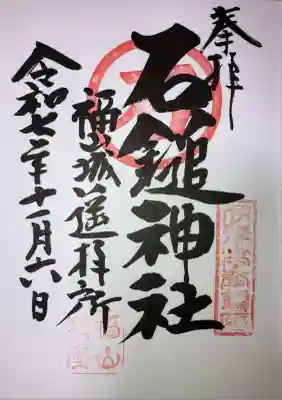 奉拝
石鎚神社
福城遥拝所
令和七年十一月六日